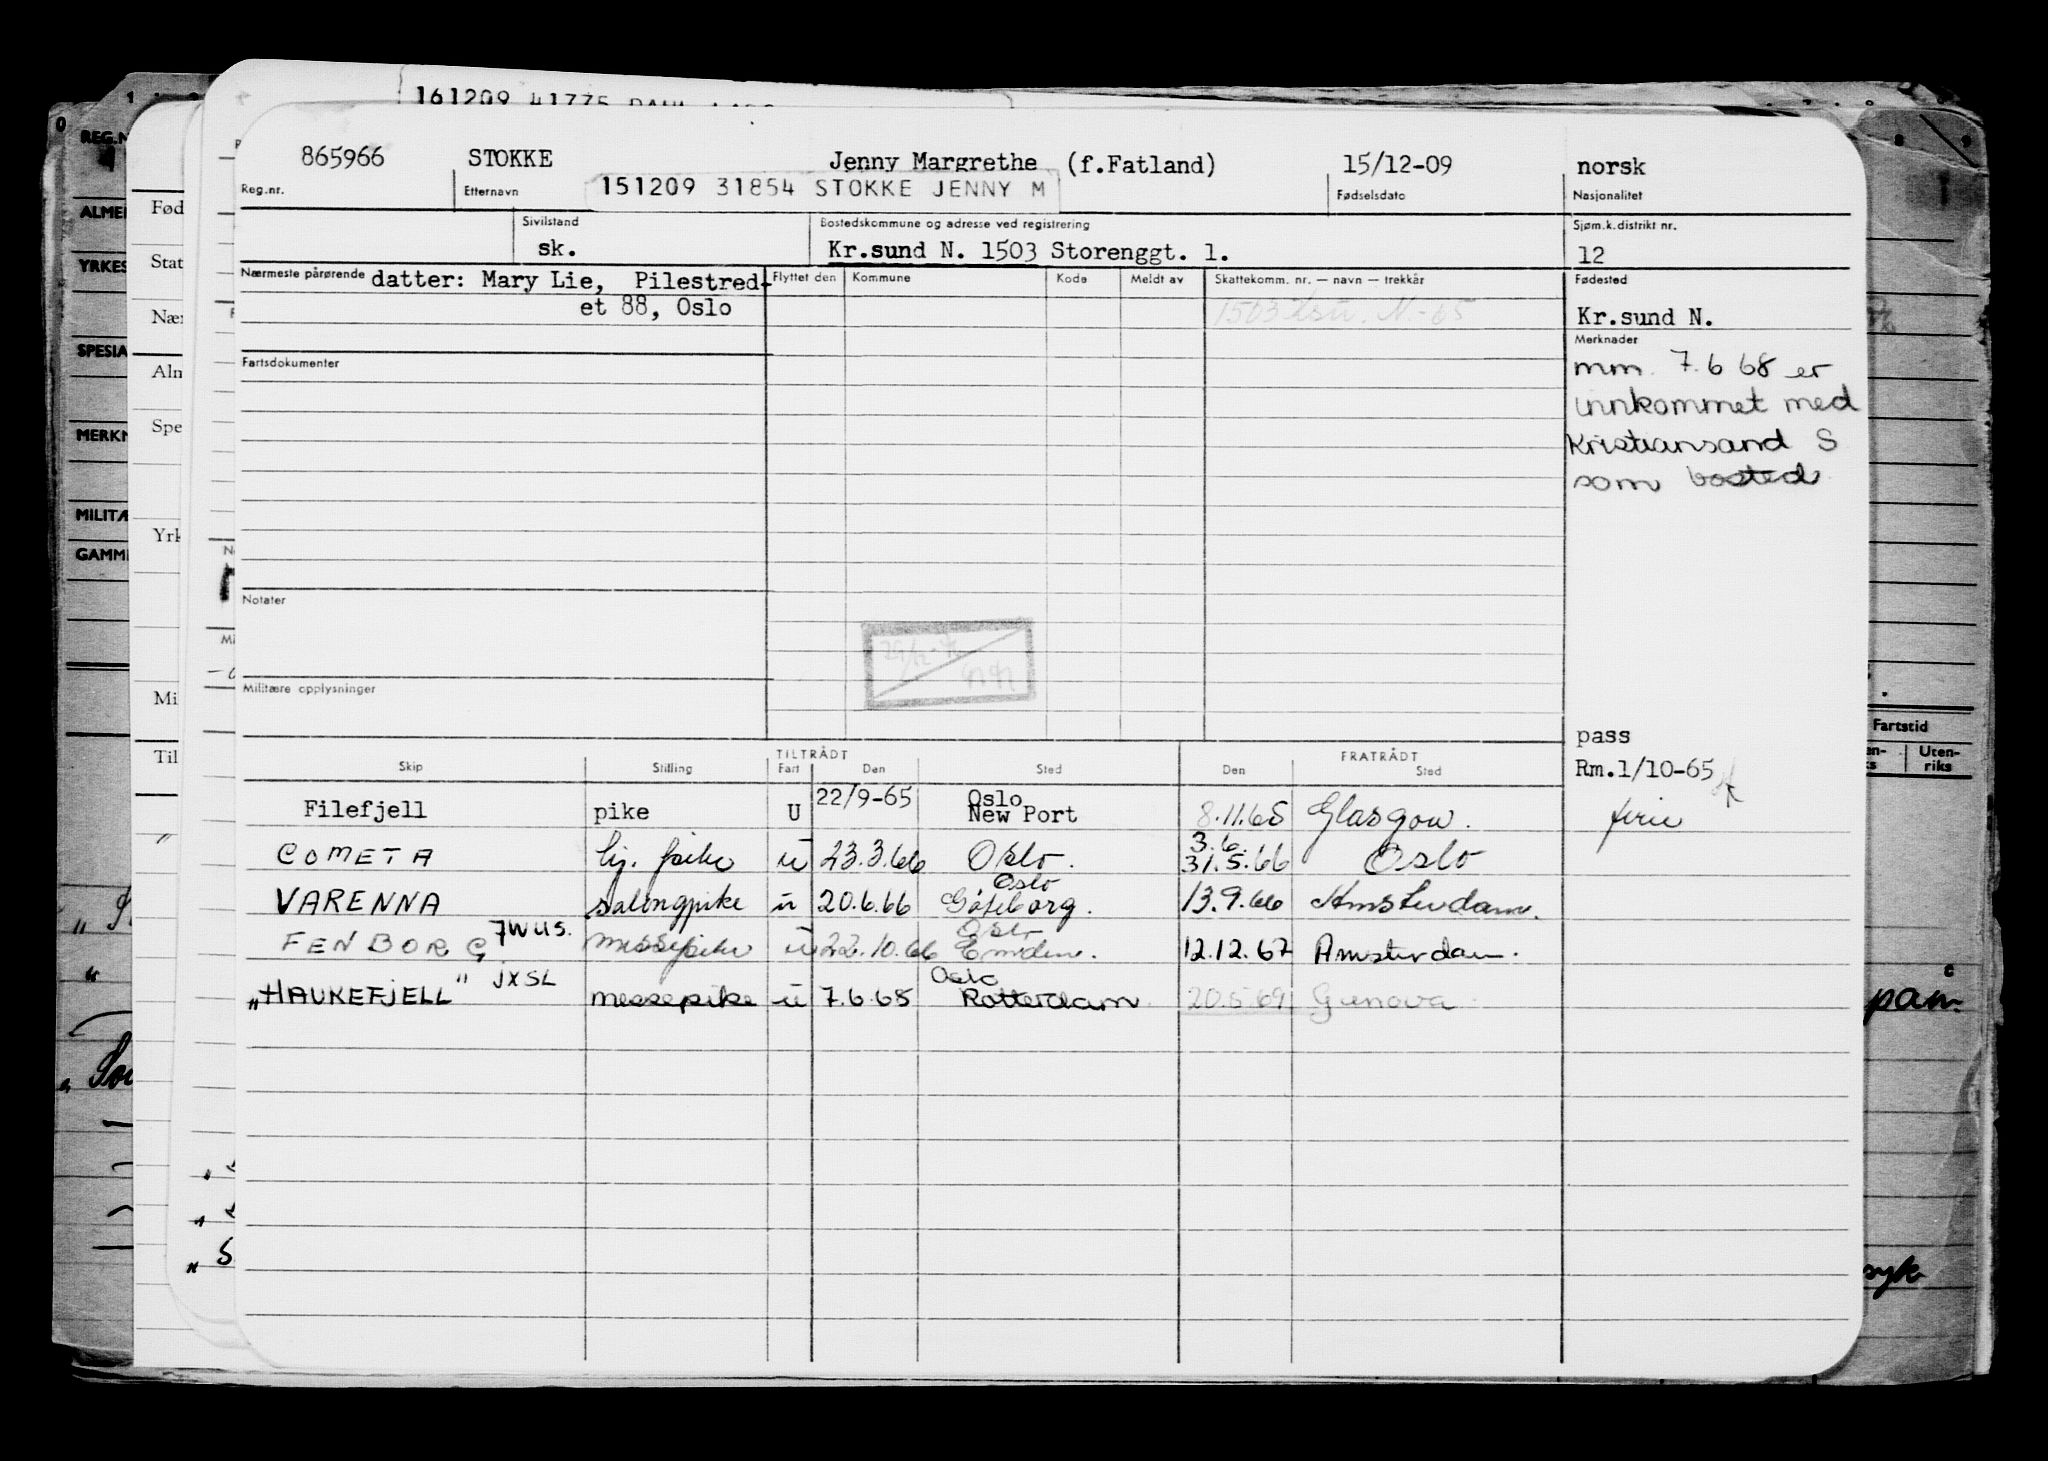 161209 41775 DAHL
865966 STOKKE Jenny Margrethe (f.Fatland) 15/12-09 norsk
Reg.nr. Etternavn 151209 31854 STOKKE JENNY M Fødselsdato Nasjonalitet
Sivilstand Bostedskommune og adresse ved registrering Sjøm.k.distrikt nr.
sk. Kr.sund N. 1503 Storenggt. 1. 12
Nærmeste pårørende datter: Mary Lie, Pilestred- Flyttet den Kommune Kode Meldt av Skattekomm. nr. — navn — trekkår Fødested
et 88, Oslo 1503 N.-65 Kr.sund N.
Merknader
Fartsdokumenter
mm. 7.6 68 er
innkommet med
Kristiansand S
som bosted
Notater
Militære opplysninger
pass
TILTRÅDT FRATRÅDT
Skip Stilling Fart Den Sted Den Sted Rm.1/10-65
22/9-65 Oslo
Filefjell pike U New Port 8.11.65 Glasgow. ferie
3.6.
COMETA hj. pike u 23.3.66 Oslo. 31.5.66 Oslo
Oslo
VARENNA salongpike u 20.6.66 Göteborg. 13.9.66 Amsterdam.
JWUS. Oslo
FENBORG messepike u 22.10.66 Emden. 12.12.67 Amsterdam.
JXSL Oslo
"HAUKEFJELL" messepike u 7.6.68 Rotterdam 20.5.69 Genova
REG.N
ALMEN
YRKES
SPESIA
MERKN
MILITÆ
GAMME
Fød
Stat
Nær
Aln
Spe
Yrk
Mi
Til
Fartstid
Uten-
riks
pam.
syk